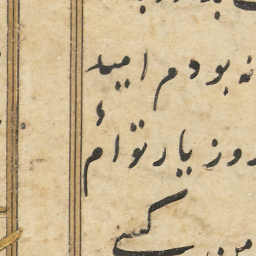 نه بودم امید
روز یار توأم
من کسی